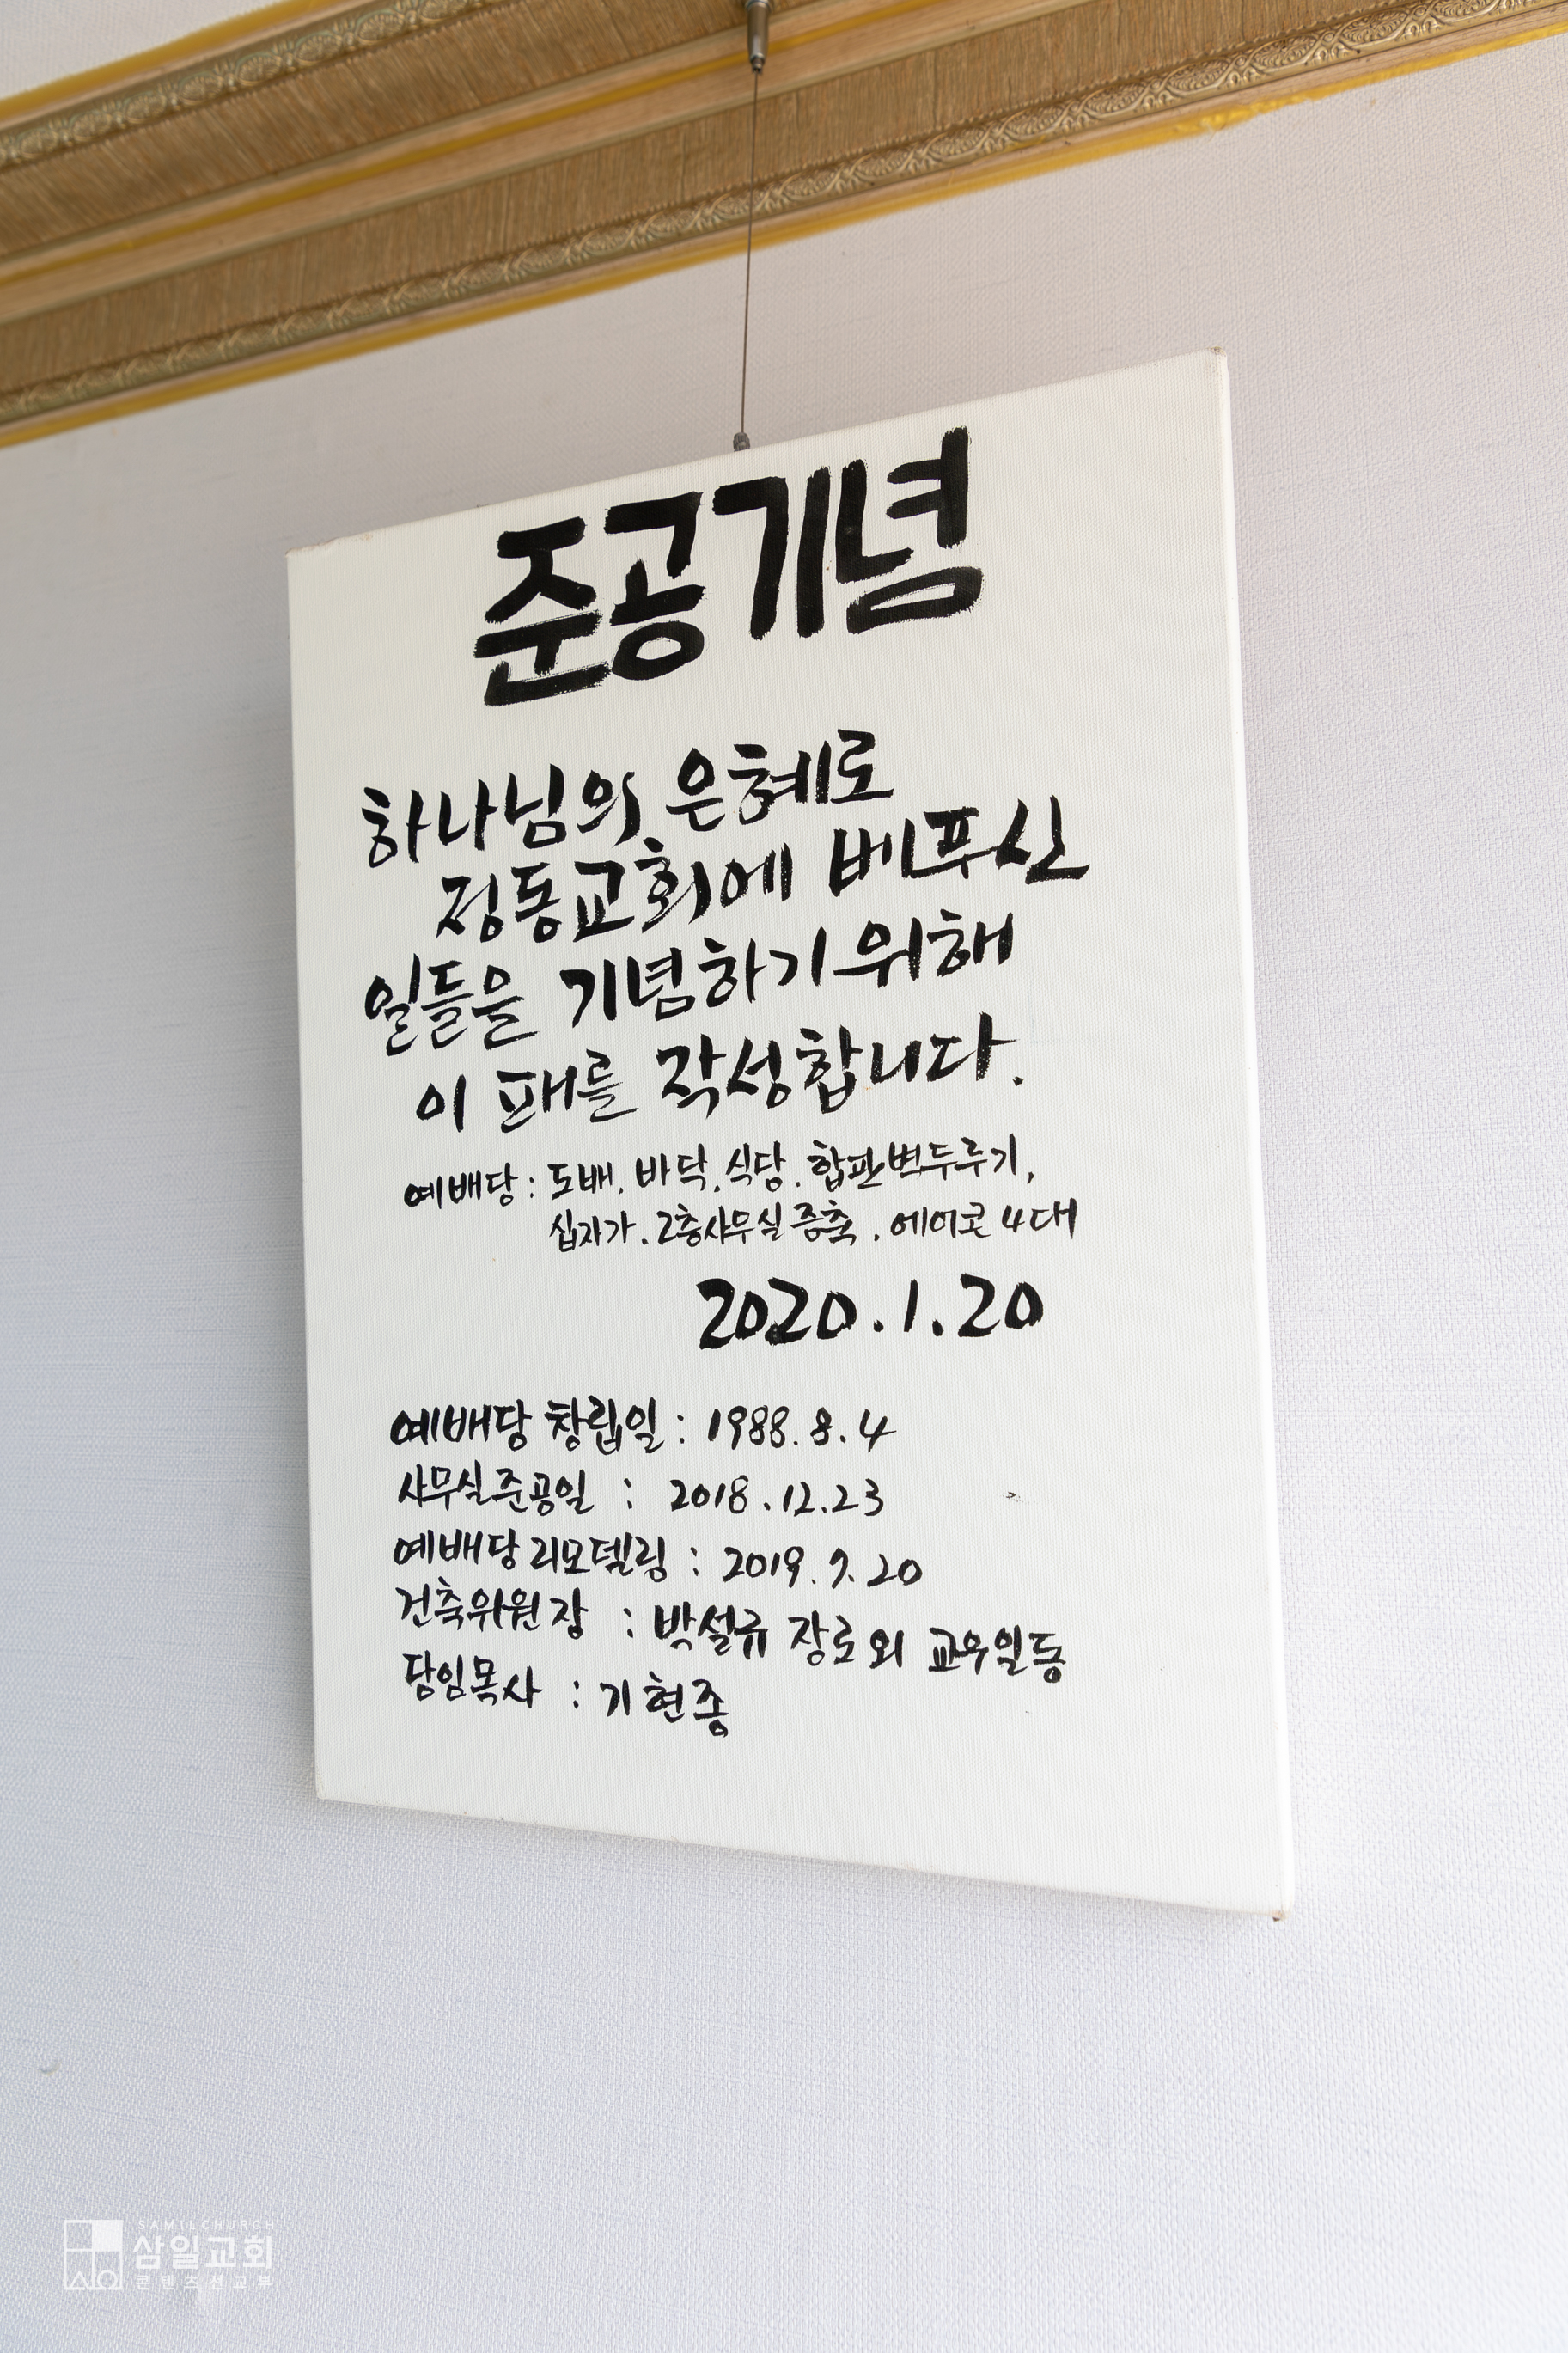 준공기념
하나님의 은혜로
정동교회에 베푸신
일들을 기념하기 위해
이 패를 작성합니다.
예배당 : 도배, 바닥, 식당, 합판벽두루기,
십자가, 2층사무실 증축, 에어콘 4대
2020.1.20
예배당 창립일 : 1988. 8. 4
사무실준공일 : 2018.12.23
예배당 리모델링 : 2019. 9. 20
건축위원장 : 박설류 장로 외 교우일동
담임목사 : 기현종
SAMILCHURCH
삼일교회
콘텐츠선교부